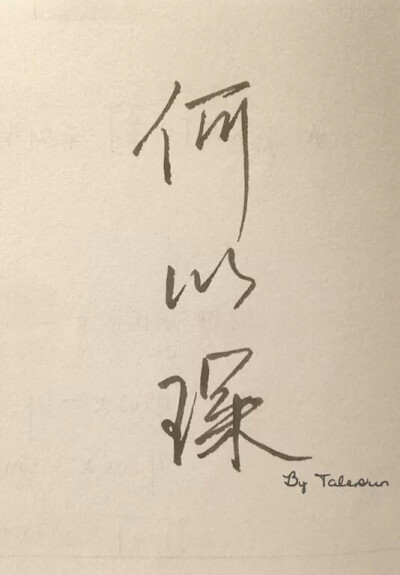 何以琛
By Talesun